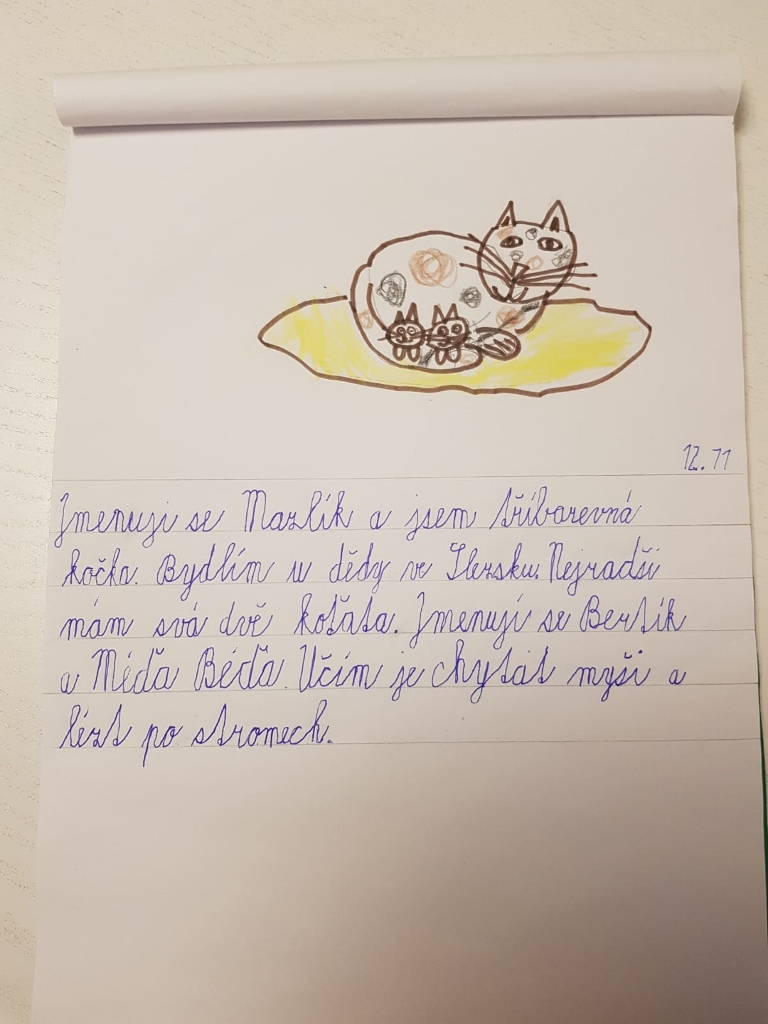 12.11
Jmenuji se Mazlík a jsem tříbarevná
kočka. Bydlím u dědy ve Slezsku. Nejradši
mám svá dvě koťata. Jmenují se Bertík
a Méďa Béďa. Učím je chytat myši a
lézt po stromech.